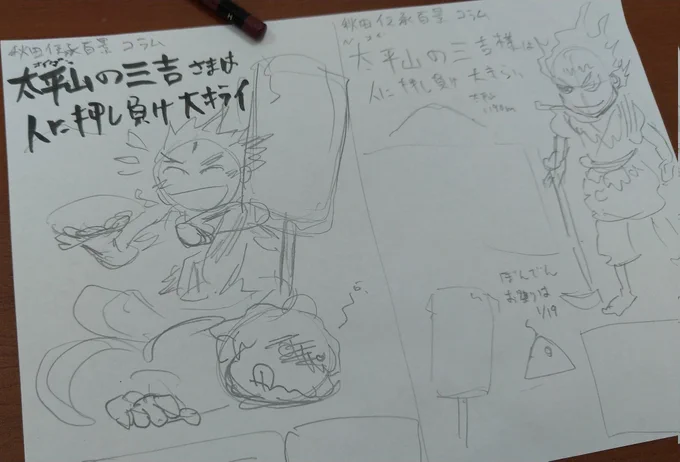 秋田伝承百景 コラム
太平山の三吉さまは
人に押し負け大キライ
秋田伝承百景 コラム
太平山の三吉様は
人に押し負け大きらい
ぼんでん
お祭りは
1/19